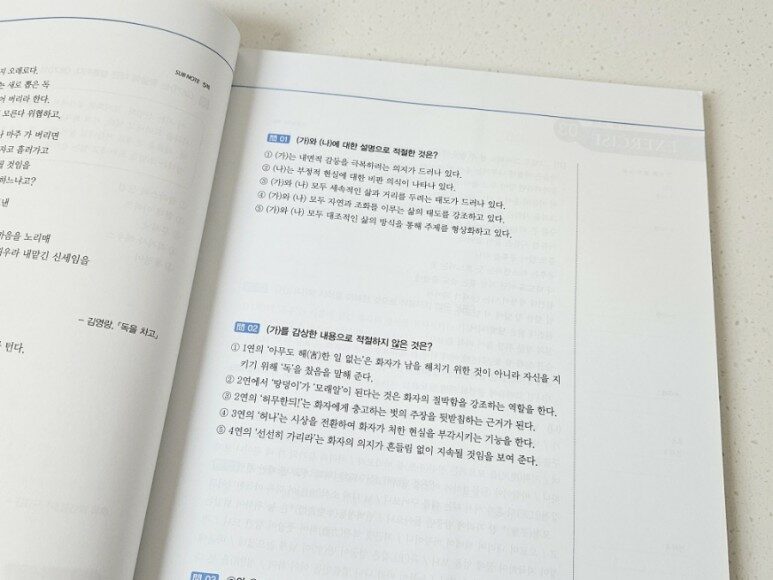 지 오래로다.
는 새로 뽑은 독
어 버리라 한다.
모른다 위협하고,
나 마주 가 버리면
자코 흘러가고
될 것임을
하느냐고?
낸
마음을 노리매
내맡긴 신세임을
- 김영랑, 「독을 차고」
턴다.
SUB NOTE
EXERCISE
問 01 (가)와 (나)에 대한 설명으로 적절한 것은?
① (가)는 내면적 갈등을 극복하려는 의지가 드러나 있다.
② (나)는 부정적 현실에 대한 비판 의식이 나타나 있다.
③ (가)와 (나) 모두 세속적인 삶과 거리를 두려는 태도가 드러나 있다.
④ (가)와 (나) 모두 자연과 조화를 이루는 삶의 태도를 강조하고 있다.
⑤ (가)와 (나) 모두 대조적인 삶의 방식을 통해 주제를 형상화하고 있다.
問 02 (가)를 감상한 내용으로 적절하지 않은 것은?
① 1연의 ‘아무도 해(害)한 일 없는’은 화자가 남을 해치기 위한 것이 아니라 자신을 지
키기 위해 ‘독’을 찼음을 말해 준다.
② 2연에서 ‘땅덩이’가 ‘모래알’이 된다는 것은 화자의 절박함을 강조하는 역할을 한다.
③ 2연의 ‘허무한듸!’는 화자에게 충고하는 벗의 주장을 뒷받침하는 근거가 된다.
④ 3연의 ‘허나’는 시상을 전환하여 화자가 처한 현실을 부각시키는 기능을 한다.
⑤ 4연의 ‘선선히 가리라’는 화자의 의지가 흔들림 없이 지속될 것임을 보여 준다.
問 03